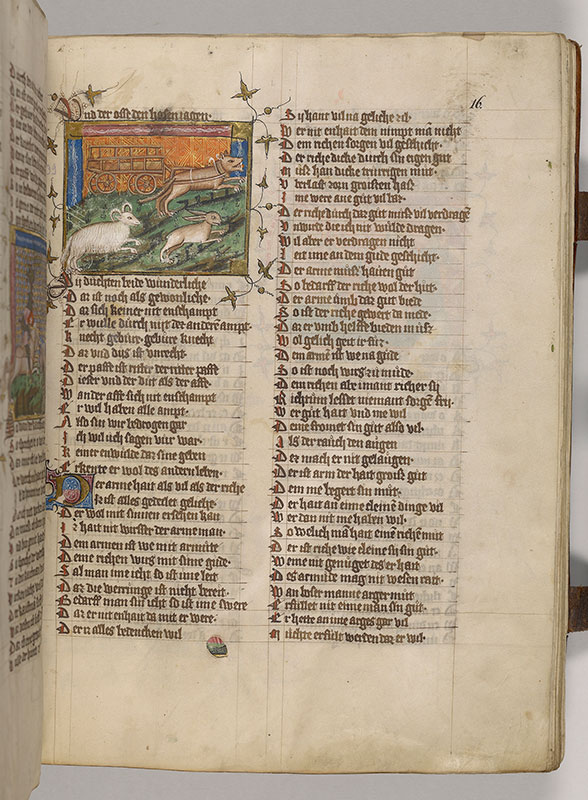 Und der osse den hasen iagen.
Sij duchten beide wunderliche
Daz ist noch als gewonliche.
Daz sich keiner nit enschampt
Er wulle durch mit der andern ampt.
knecht gebur. gebure knecht
Daz vnd dus ist vnrecht.
Der paffe ist ritter der ritter paffe
Dieser vnd der dut als der affe.
Wan der affe sich nit enschampt
Er wil haben alle ampt.
Also sin wir bedrogen gar
Ich wil uch sagen vur war.
keiner enwulde daz sine geben
Erkente er wol des andern leben.
Der arme hait als vil als der riche
Iz ist alles gedeilet geliche.
Der wol mit sinnen ersehen kan
Iz hait nit wirsser der arme man.
Dem armen ist we mit armute
Deme richen wirs mit sime gude.
Sal man ime icht so ist ime leit
Daz die werrunge ist nicht bereit.
Bedarff man sin icht so ist ime swere
Daz er nit enhait da mit er were.
Der alles bedencken wil
16
Sij hant vil na geliche vil.
Wer nit enhait dem nimpt man nicht
Dem richen sorgen vil geschicht.
Der riche dicke durch sin eigen gut
Muß han dicke trurrigen mut.
Vberlast zorn groissen haß
Ime were ane gut vil baz.
Der riche durch daz gut muß vil verdragen
Nwurde die ich nit wulde dragen.
Wil aber er verdragen nicht
leit ime an dem gude geschicht.
Der arme muß hauen gut
So bedarff der riche wol der hut.
Der arme vmb daz gut biede
So ist der riche gewert da mede.
Daz er vmb helffe bieden muß.
Wol gelich get ir fuz.
Dem armen ist we na gude
So ist noch wurs zu mude.
Dem richen als imant richer sij
Richtum lesset niemant sorgen frij.
Wer gut hait vnd me wil
Deme fromet sin gut also vil.
Als der rauch den augen
Der mach er nit gelaugen.
Der ist arm der hait groiß gut
Dem me begert sin mut.
Der hait an eime cleinen dinge vil
Wer dan nit me haben wil.
So welich man hait eine richen mut
Der ist riche wie cleine si sin gut.
Weme nit genuget des er hait
Des armude mag nit wesen rait.
Wan boser manne arger mut
Erfullet nit eime man sin gut.
Er hette an ime arges gar vil
Mochte erfult werden daz er wil.